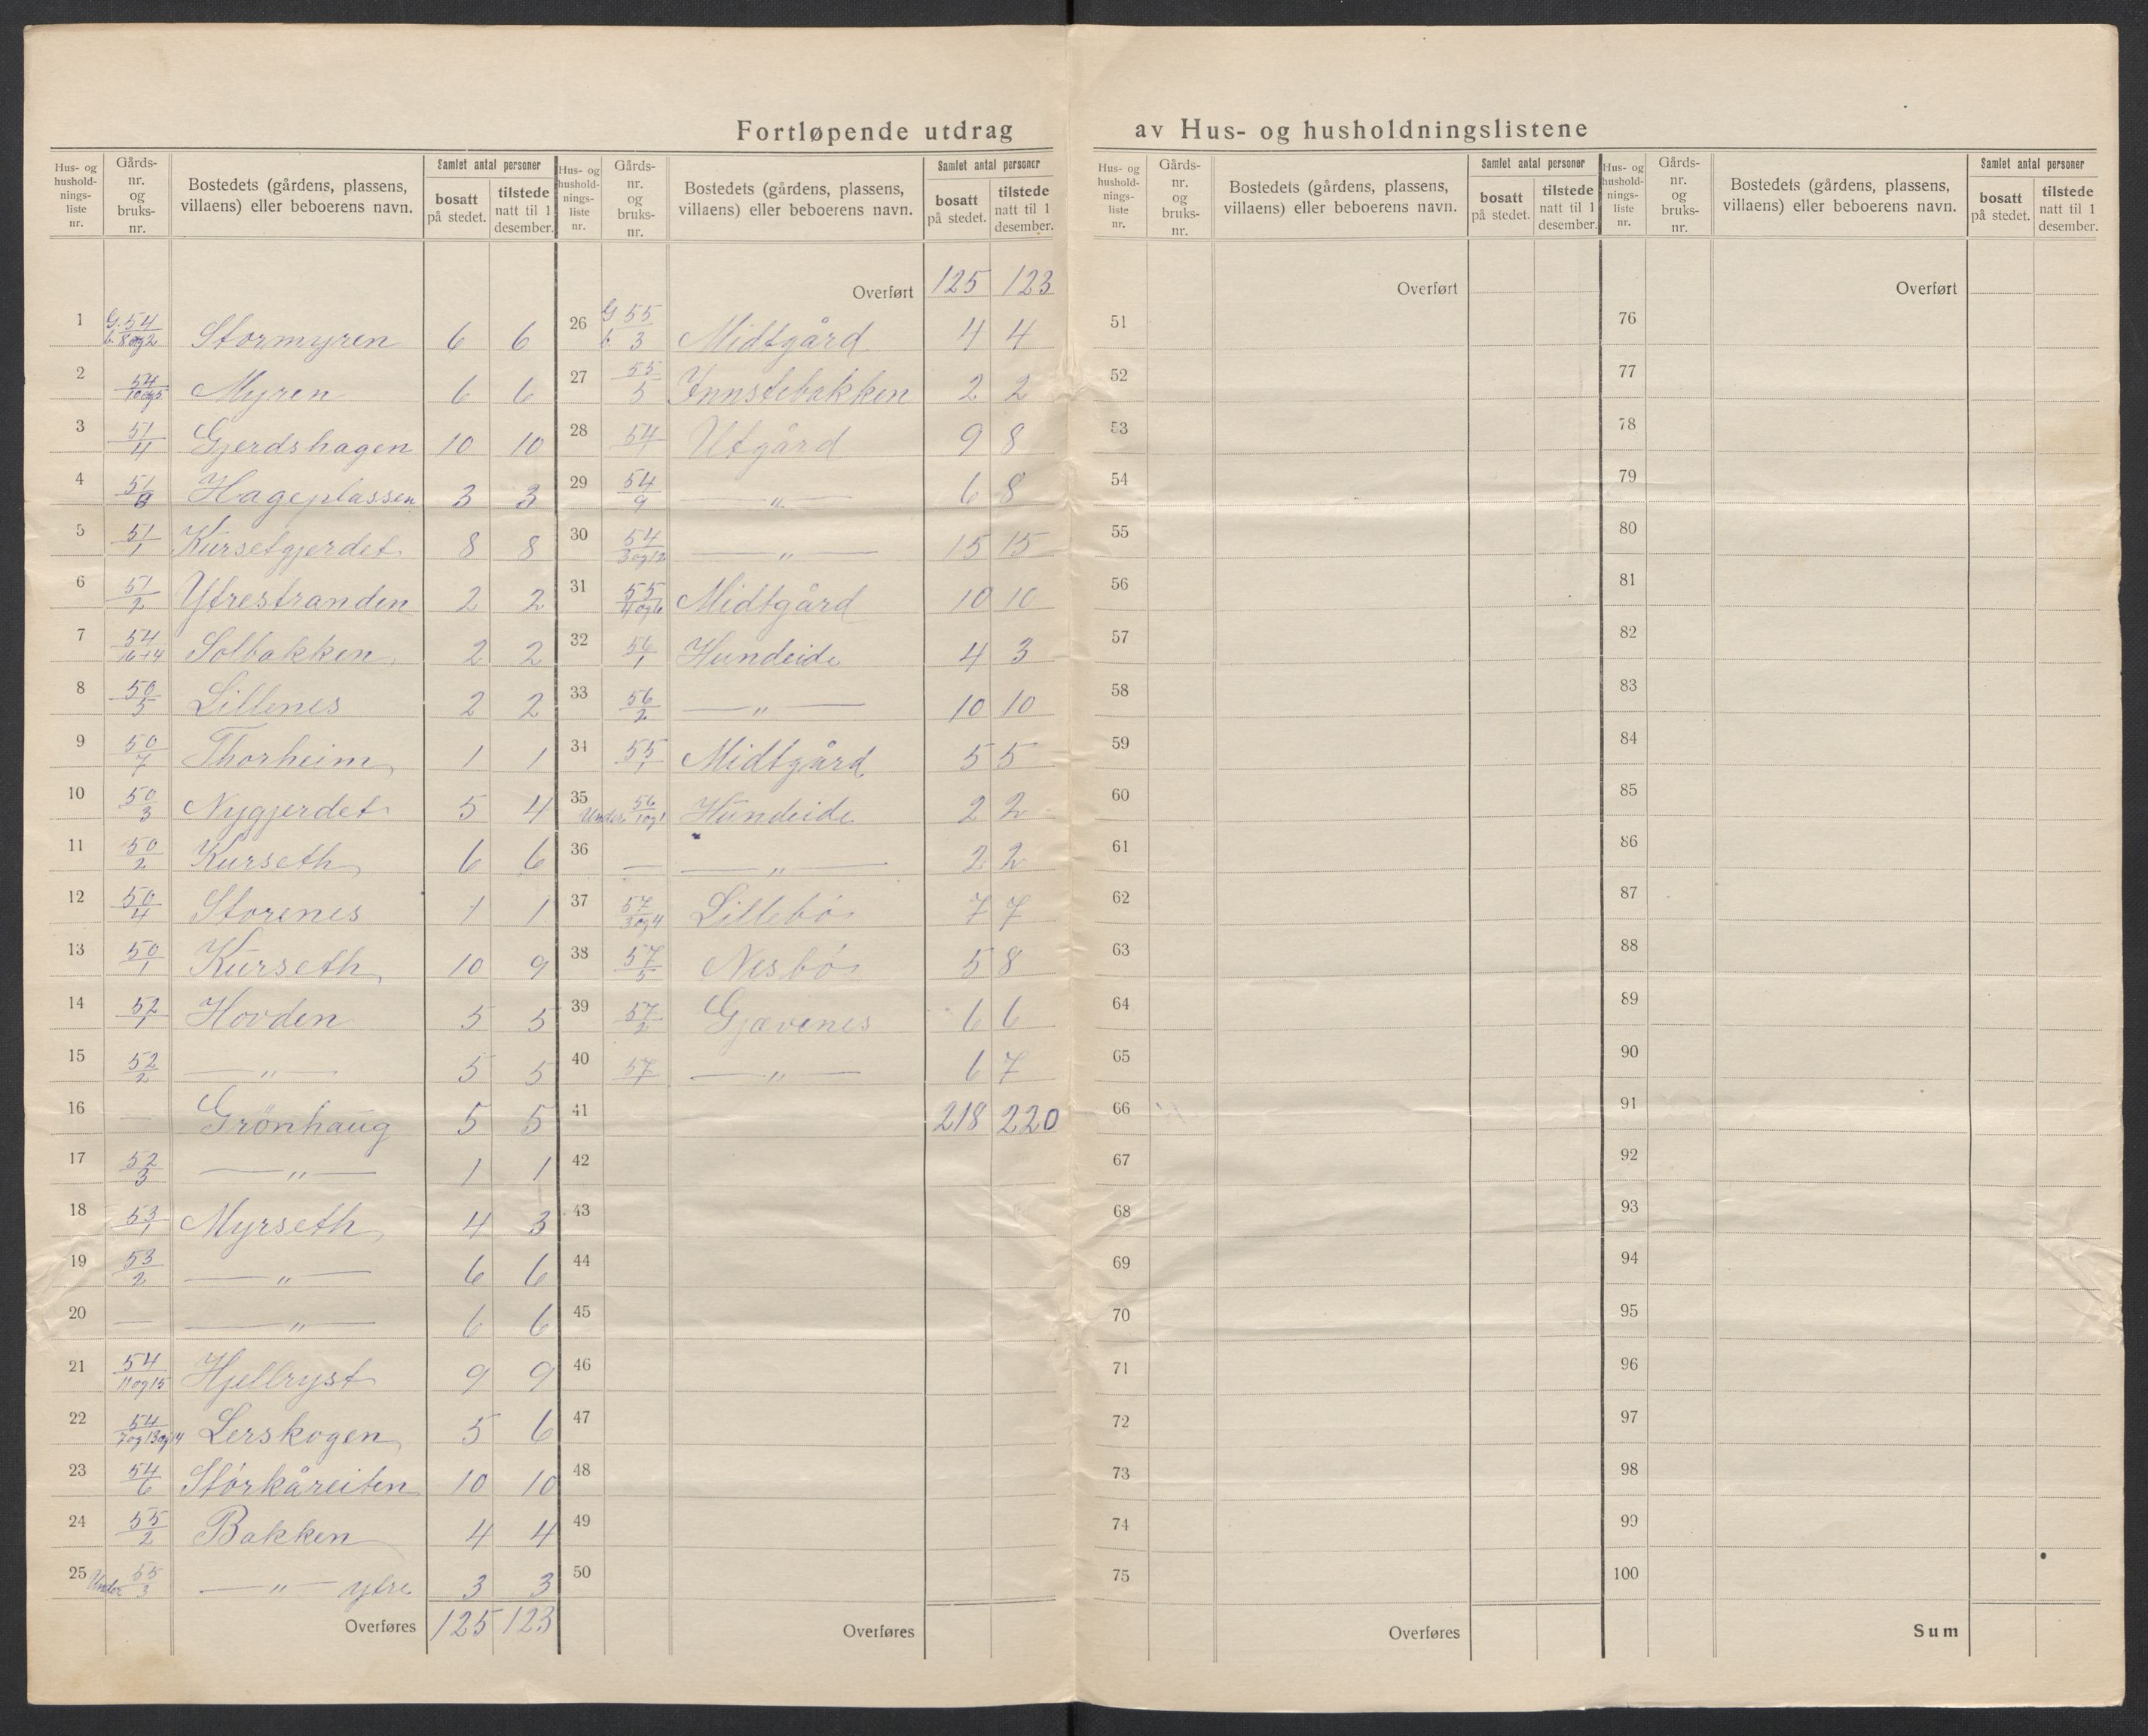 Fortløpende utdrag av Hus- og husholdningslistene
Hus- og hushold-nings-liste nr. | Gårds-nr. og bruks-nr. | Bostedets (gårdens, plassens, villaens) eller beboerens navn. | Samlet antal personer | bosatt på stedet. | tilstede natt til 1 desember.
1 G. 54 b. 8 og 2 Stormyren 6 6
2 54/10 og 5 Myren 6 6
3 51/4 Gjerdshagen 10 10
4 51/ Hageplassen 3 3
5 51/1 Kursetgjerdet 8 8
6 51/2 Ytrestranden 2 2
7 54/16+4 Solbakken 2 2
8 50/5 Lillenes 2 2
9 50/7 Thorheim 1 1
10 50/3 Nygjerdet 5 4
11 50/2 Kurseth 6 6
12 50/4 Storenes 1 1
13 50/1 Kurseth 10 9
14 52/1 Hovden 5 5
15 52/2 — " — 5 5
16 — Grönhaug 5 5
17 52/3 — " — 1 1
18 53/1 Myrseth 4 3
19 53/2 — " — 6 6
20 — — " — 6 6
21 54/11 og 15 Hjellryst 9 9
22 54/7 og 13 og 14 Lerskogen 5 6
23 54/6 Störkåreiten 10 10
24 55/2 Bakken 4 4
25 Under 55/3 — " — ytre 3 3
Overføres 125 123
Hus- og hushold-nings-liste nr. | Gårds-nr. og bruks-nr. | Bostedets (gårdens, plassens, villaens) eller beboerens navn. | Samlet antal personer | bosatt på stedet. | tilstede natt til 1 desember.
Overført 125 123
26 G 55 b. 3 Midtgård 4 4
27 55/5 Innstebakken 2 2
28 54 Utgård 9 8
29 54/9 — " — 6 8
30 54/3 og 12 — " — 15 15
31 55/4 og 6 Midtgård 10 10
32 56/1 Hundeide 4 3
33 56/2 — " — 10 10
34 55/1 Midtgård 5 5
35 Under 56/1 og 1 Hundeide 2 2
36 — — " — 2 2
37 57/3 og 4 Lillebö 7 7
38 57/5 Nesbö 5 8
39 57/2 Gjævenes 6 6
40 57/1 — " — 6 7
41 218 220
42
43
44
45
46
47
48
49
50
Overføres
Hus- og hushold-nings-liste nr. | Gårds-nr. og bruks-nr. | Bostedets (gårdens, plassens, villaens) eller beboerens navn. | Samlet antal personer | bosatt på stedet. | tilstede natt til 1 desember.
Overført
51
52
53
54
55
56
57
58
59
60
61
62
63
64
65
66
67
68
69
70
71
72
73
74
75
Overføres
Hus- og hushold-nings-liste nr. | Gårds-nr. og bruks-nr. | Bostedets (gårdens, plassens, villaens) eller beboerens navn. | Samlet antal personer | bosatt på stedet. | tilstede natt til 1 desember.
Overført
76
77
78
79
80
81
82
83
84
85
86
87
88
89
90
91
92
93
94
95
96
97
98
99
100
Sum